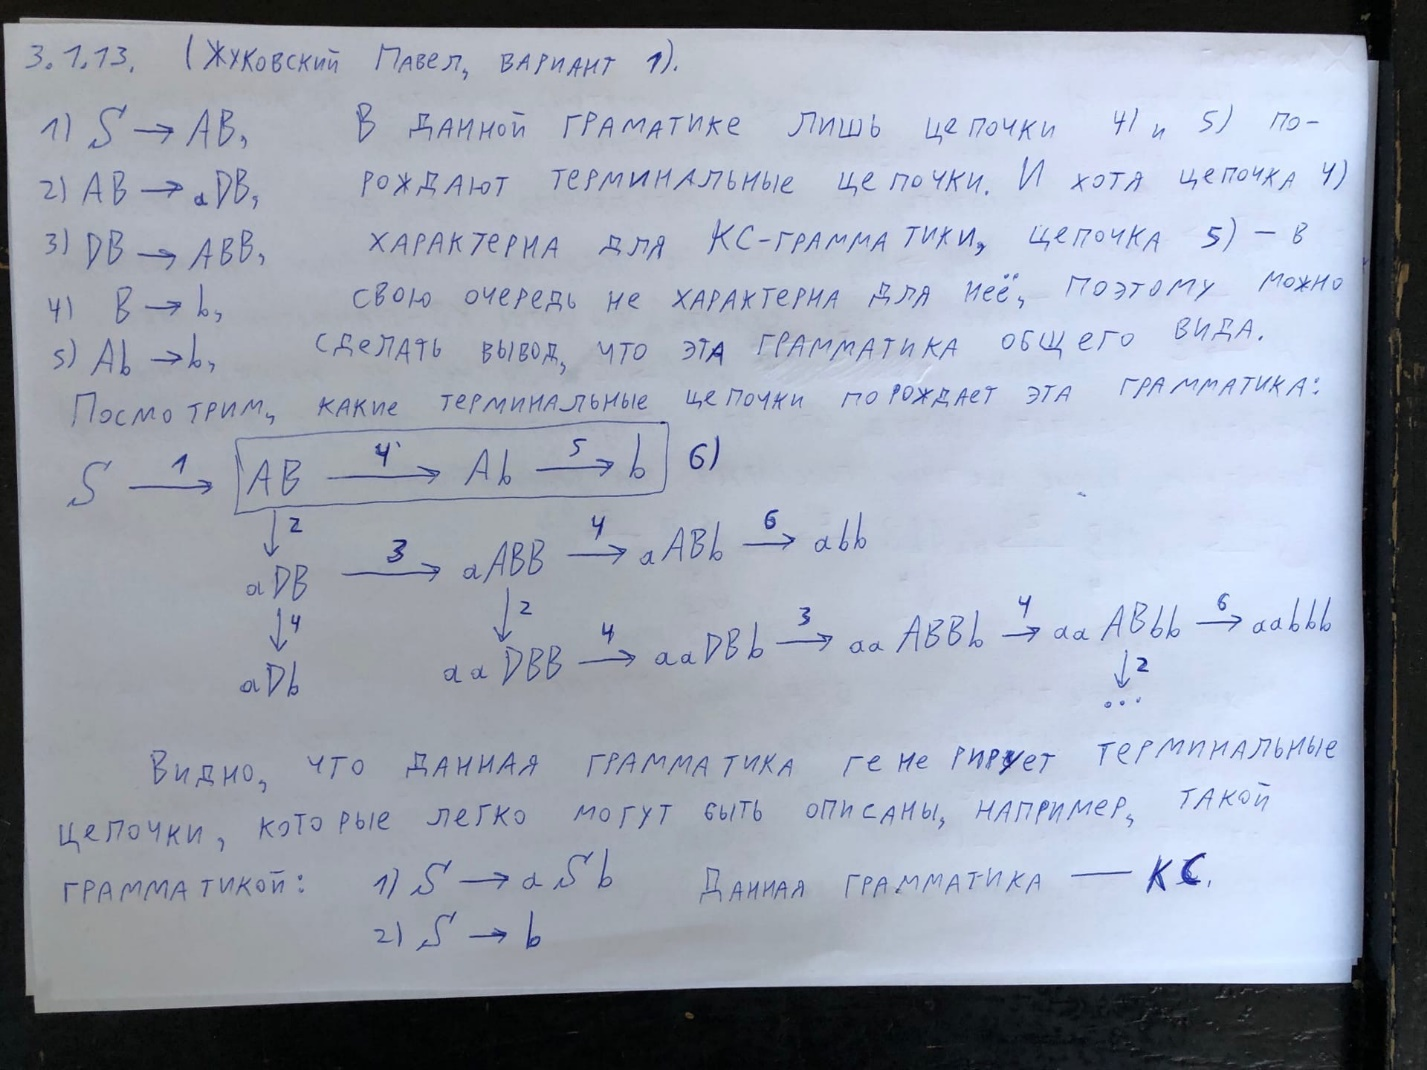 3.1.13. (Жуковский Павел, вариант 1).
1) S → AB, В данной граматике лишь цепочки 4) и 5) по-
2) AB → aDB, рождают терминальные цепочки. И хотя цепочка 4)
3) DB → ABB, характерна для КС-грамматики, цепочка 5) – в
4) B → b, свою очередь не характерна для неё, поэтому можно
5) Ab → b, сделать вывод, что эта грамматика общего вида.
Посмотрим, какие терминальные цепочки порождает эта грамматика:
S 1→ AB 4→ Ab 5→ b 6)
↓2
aDB 3→ aABB 4→ aABb 6→ abb
↓4 ↓2
aDb aaDBB 4→ aaDBb 3→ aaABBb 4→ aaABbb 6→ aabbb
↓2
...
Видно, что данная грамматика генерирует терминальные
цепочки, которые легко могут быть описаны, например, такой
грамматикой: 1) S → aSb Данная грамматика — КС.
2) S → b